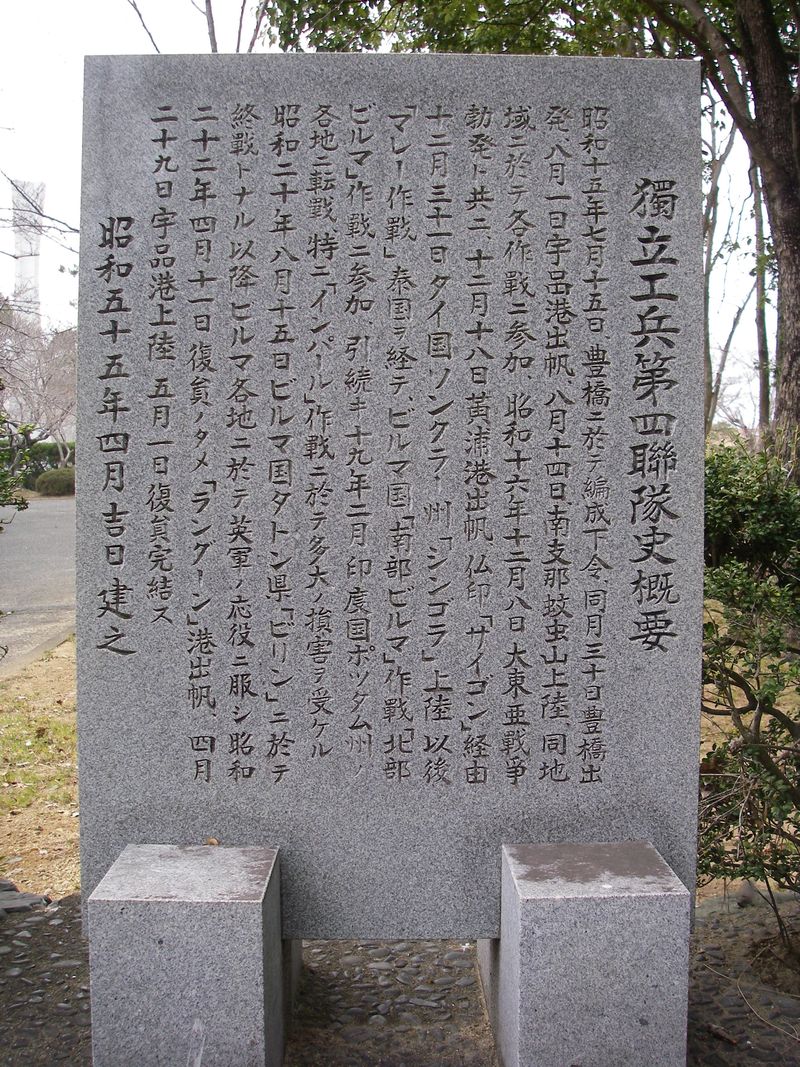 獨立工兵第四聯隊史概要
昭和十五年七月十五日、豊橋ニ於テ編成下令、同月三十日豊橋出
発、八月一日宇品港出帆、八月十四日南支那蚊虫山上陸、同地
域ニ於テ各作戦ニ参加、昭和十六年十二月八日大東亜戦争
勃発ト共ニ、十二月十八日黄浦港出帆、仏印「サイゴン」経由
十二月三十一日タイ国ソンクラー州「シンゴラ」上陸以後
「マレー作戦」泰国ヲ経テ、ビルマ国「南部ビルマ」作戦「北部
ビルマ」作戦ニ参加、引続キ十九年二月印度国ポツタム州ノ
各地ニ転戦、特ニ「インパール」作戦ニ於テ多大ノ損害ヲ受ケル
昭和二十年八月十五日ビルマ国タトン県「ビリン」ニ於テ
終戦トナル以降ビルマ各地ニ於テ英軍ノ応役ニ服シ昭和
二十二年四月十一日復貟ノタメ「ラングーン」港出帆、四月
二十九日宇品港上陸 五月一日復貟完結ス
昭和五十五年四月吉日 建之